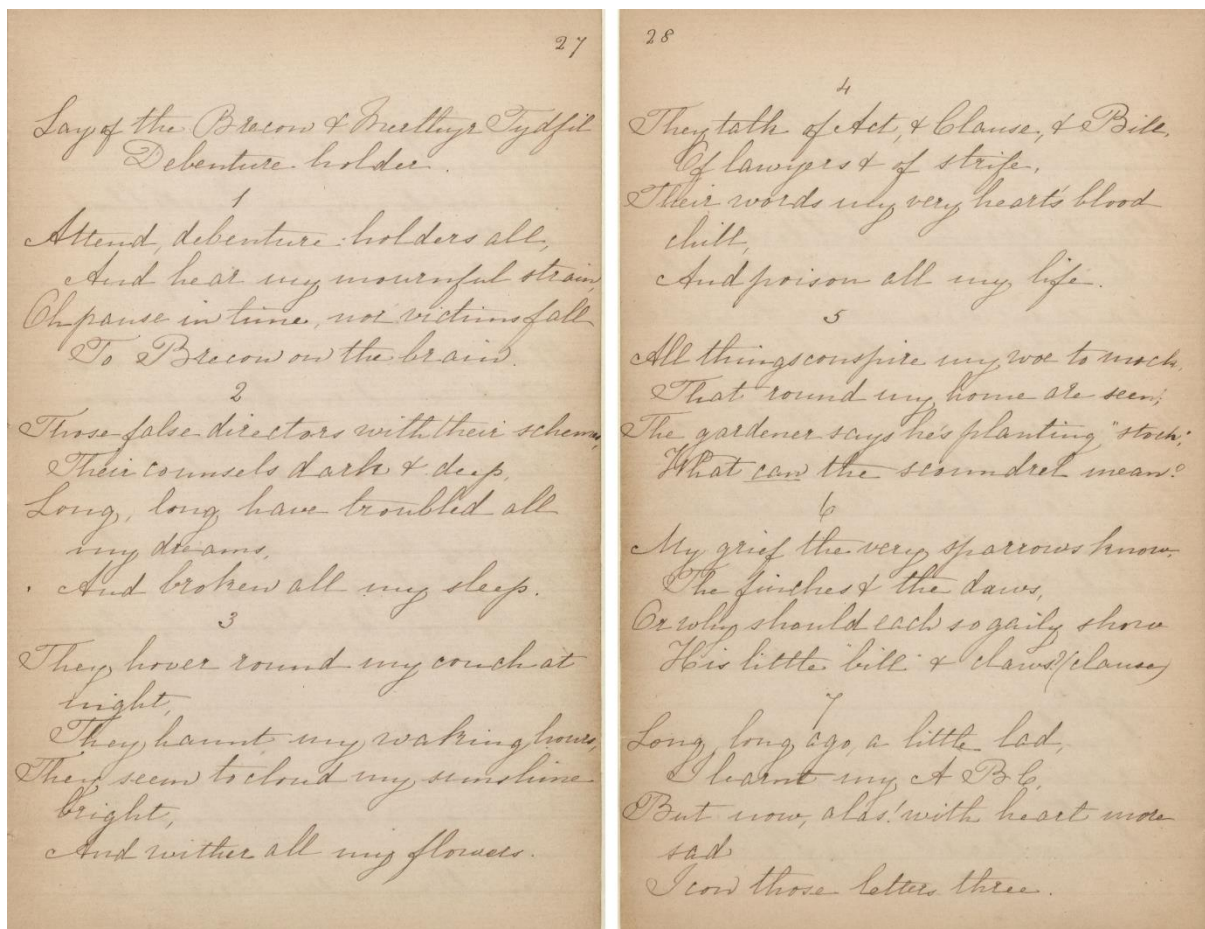 27
Lay of the Brecon & Merthyr Tydfil
Debenture holder.
1
Attend, debenture-holders all,
And hear my mournful strain,
Oh pause in time, nor victims fall
To Brecon on the brain.
2
Those false directors with their schemes,
Their counsels dark & deep,
Long, long have troubled all
my dreams,
And broken all my sleep.
3
They hover round my couch at
night,
They haunt my waking hours,
They seem to cloud my sunshine
bright,
And wither all my flowers.
28
4
They talk of Act, & Clause, & Bill,
Of lawyers & of strife,
Their words my very heart's blood
chill,
And poison all my life.
5
All things conspire my woe to mock,
That round my home are seen;
The gardener says he's planting "stock";
What can the scoundrel mean?
6
My grief the very sparrows know,
The finches & the daws,
Or why should each so gaily show
His little "bill" & claws? (clause)
7
Long, long ago, a little lad,
I learnt my A B C,
But now, alas! with heart more
sad
I con those letters three.